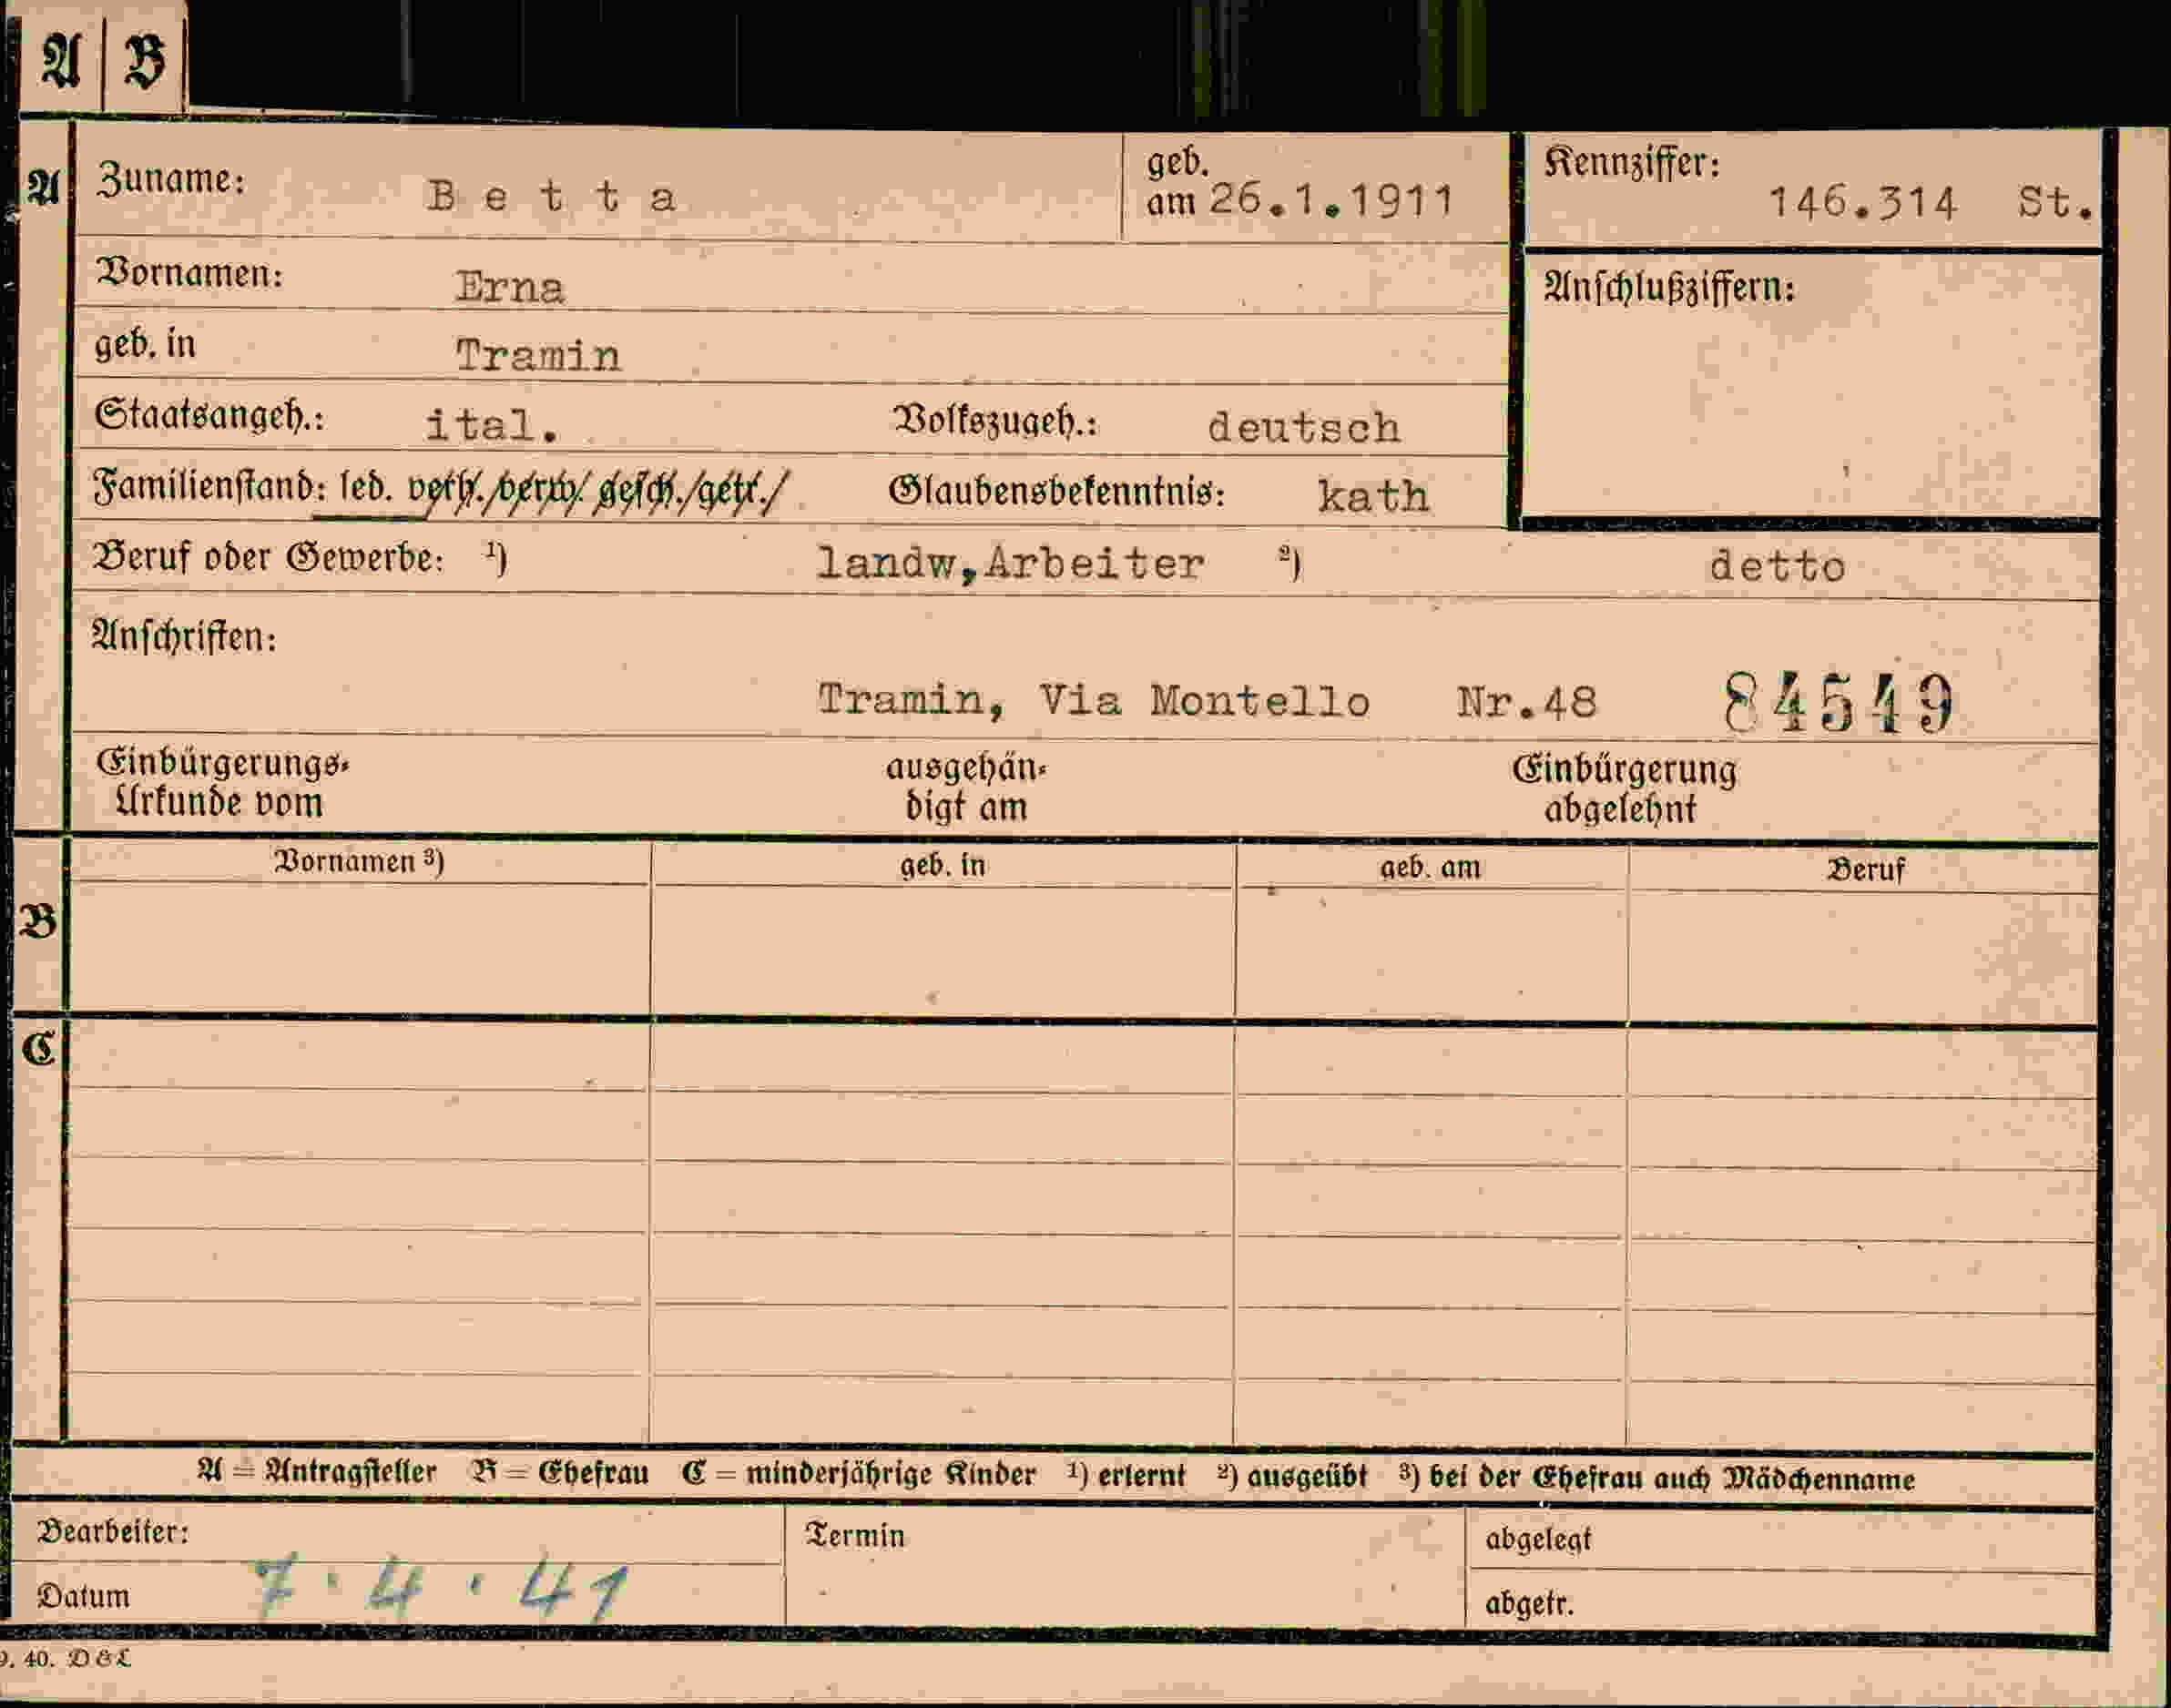 A B
A Zuname: Betta geb. am 26.1.1911 Kennziffer: 146.314 St.
Vornamen: Erna Anschlußziffern:
geb. in Tramin
Staatsangeh.: ital. Volkszugeh.: deutsch
Familienstand: led. verh./verw./gesch./getr./ Glaubensbekenntnis: kath
Beruf oder Gewerbe: ¹) landw,Arbeiter ²) detto
Anschriften:
Tramin, Via Montello Nr.48 84549
Einbürgerungs- ausgehän- Einbürgerung
Urkunde vom digt am abgelehnt
Vornamen ³) geb. in geb. am Beruf
B
C
A = Antragsteller B = Ehefrau C = minderjährige Kinder ¹) erlernt ²) ausgeübt ³) bei der Ehefrau auch Mädchenname
Bearbeiter: Termin abgelegt
Datum 7.4.41 abgetr.
9. 40. D & L